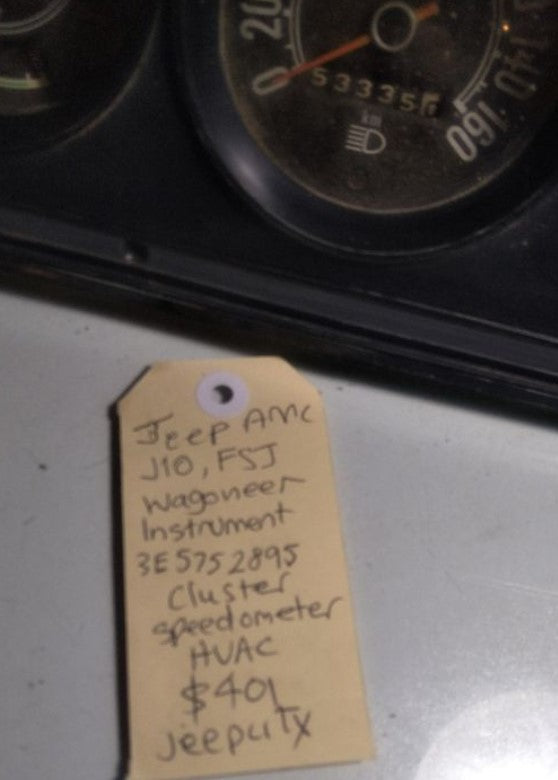 20
0
533356
km
140
160
Jeep AMC
J10, FSJ
Wagoneer
Instrument
3E5752895
Cluster
speedometer
HVAC
$40L